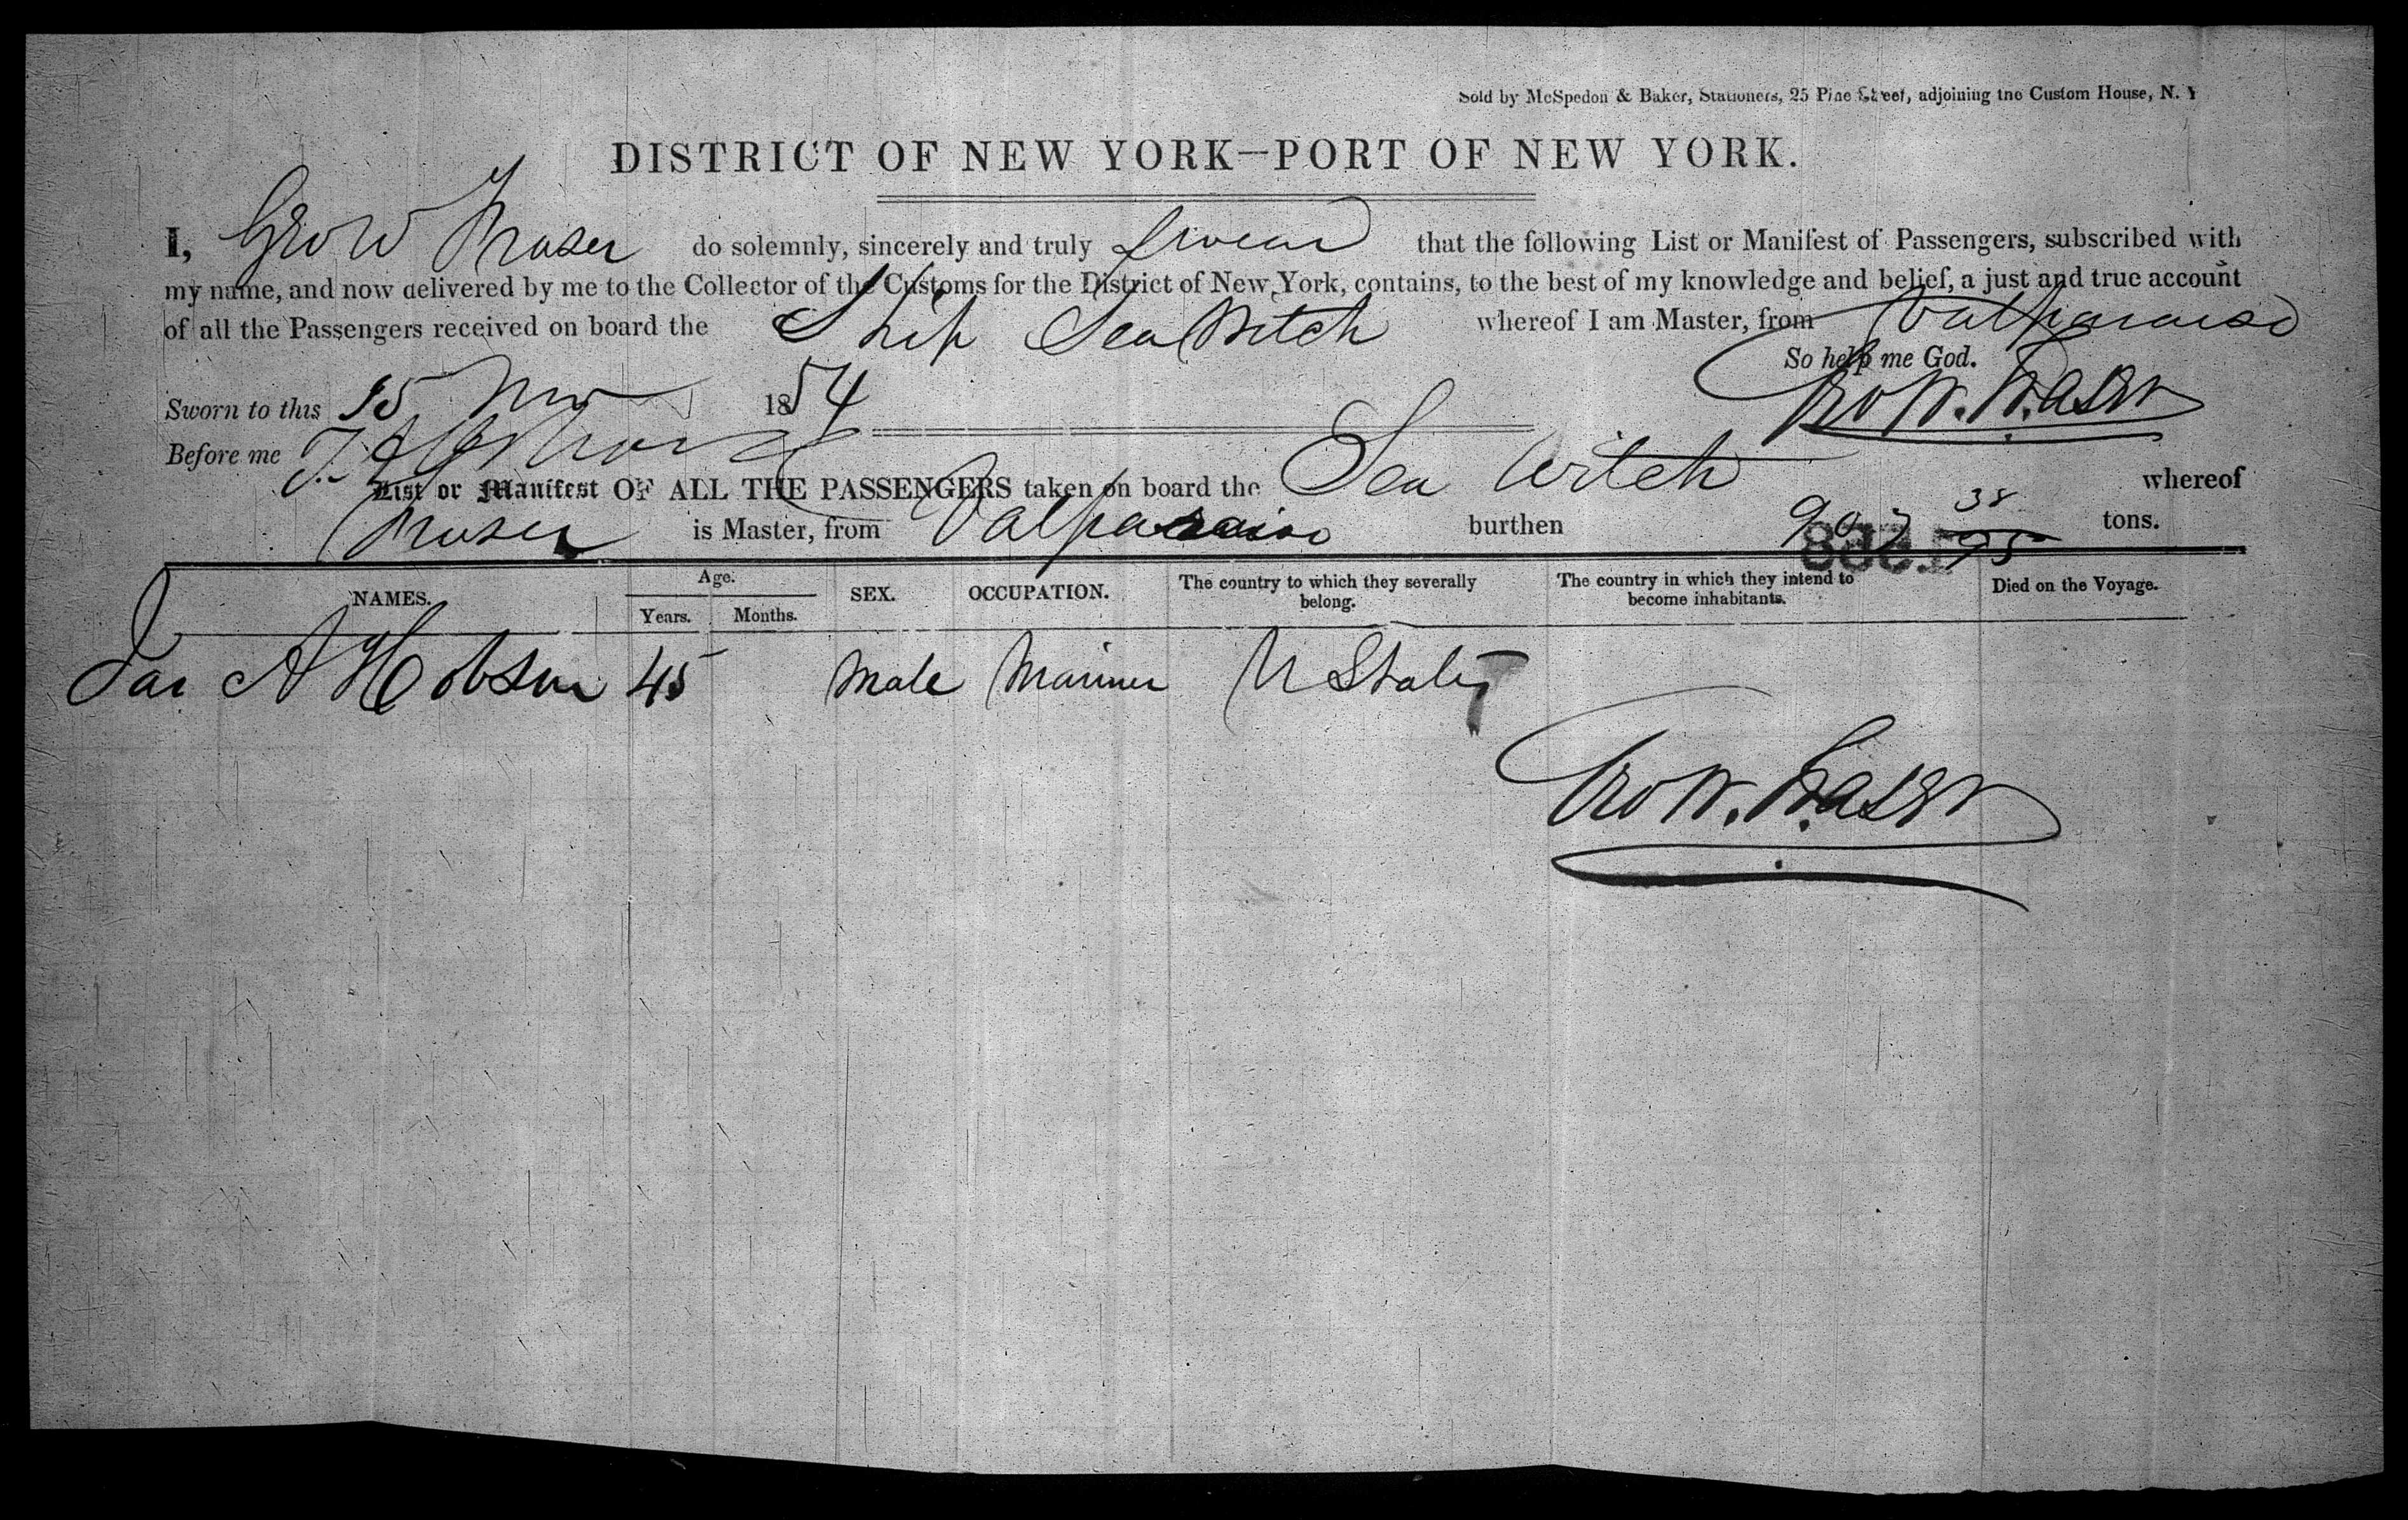 Sold by McSpedon & Baker, Stationers, 25 Pine Street, adjoining the Custom House, N. Y
DISTRICT OF NEW YORK—PORT OF NEW YORK.
I, Geo W Fraser do solemnly, sincerely and truly swear that the following List or Manifest of Passengers, subscribed with
my name, and now delivered by me to the Collector of the Customs for the District of New York, contains, to the best of my knowledge and belief, a just and true account
of all the Passengers received on board the Ship Sea Witch whereof I am Master, from Valparaiso
So help me God.
Sworn to this 15 Nov 1854 Geo W. Fraser
Before me
List or Manifest OF ALL THE PASSENGERS taken on board the Sea Witch whereof
Fraser is Master, from Valparaiso burthen 907 38/95 tons.
NAMES. Age. Years. Months. SEX. OCCUPATION. The country to which they severally belong. The country in which they intend to become inhabitants. Died on the Voyage.
Jas A Hobson 45 Male Mariner U States
Geo W. Fraser